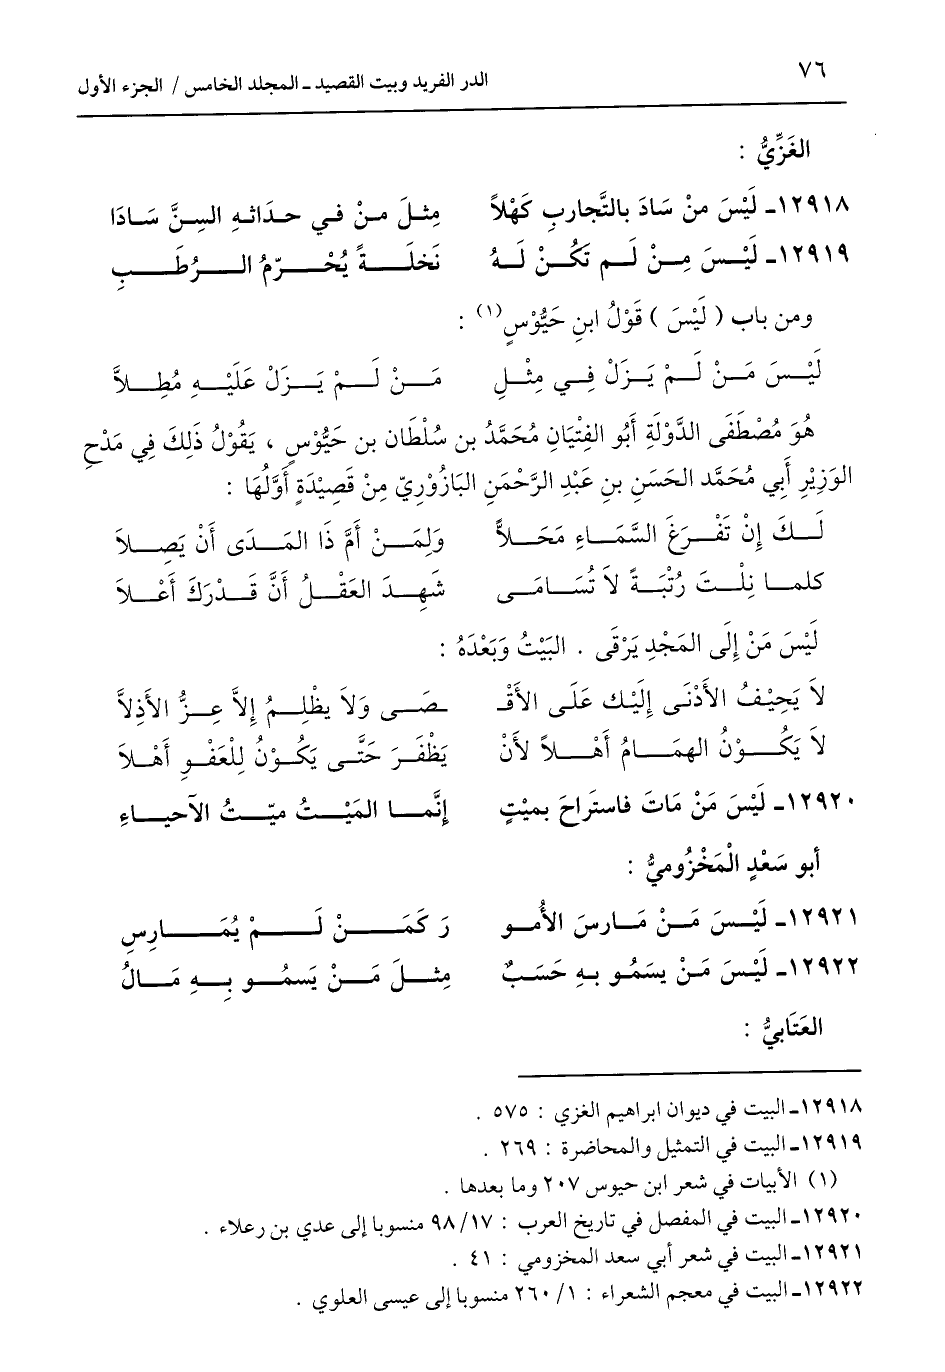 ٧٦
الدر الفريد وبيت القصيد ـ المجلد الخامس / الجزء الأول
الغَزِّيُّ :
١٢٩١٨ـ لَيْسَ منْ سَادَ بالتَّجاربِ كَهْلاً مِثلَ منْ في حدَاثهِ السنَّ سَادَا
١٢٩١٩ـ لَيْسَ مِنْ لَم تكُنْ لَهُ نَخلَةً يُحْرَمُ الرُطَبِ
ومن باب ( لَيْسَ ) قَوْلُ ابنِ حَيُّوْسٍ(١) :
لَيْسَ مَنْ لَمْ يَزَلْ فِي مِثْلِ مَنْ لَمْ يَزَلْ عَلَيْهِ مُطِلاَّ
هُوَ مُصْطَفَى الدَّوْلَةِ أَبُو الفِتْيَانِ مُحَمَّدُ بن سُلْطَان بن حَيُّوْسٍ ، يَقُوْلُ ذَلِكَ فِي مَدْحِ
الوَزِيْرِ أَبِي مُحَمَّد الحَسَنِ بنِ عَبْدِ الرَّحْمَنِ اليَازُوْرِيّ مِنْ قَصِيْدَةٍ أَوَّلُهَا :
لَكَ إِنْ تَفْرَغَ السَّمَاءِ مَحَلاًّ وَلِمَنْ أَمَّ ذَا المَدَى أَنْ يَصِلاَ
كلما نِلْتَ رُتْبَةً لاَ تُسَامَى شَهِدَ العَقْلُ أَنَّ قَدْرَكَ أَعْلاَ
لَيْسَ مَنْ إِلَى المَجْدِ يَرْقَى . البَيْتُ وَبَعْدَهُ :
لاَ يَحِيْفُ الأَدْنَى إِلَيْكَ عَلَى الأَقْـ ـصَى وَلاَ يظْلِمُ إِلاَّ عِزُّ الأَذِلاَّ
لاَ يَكُوْنُ الهمَامُ أَهْلاً لأَنْ يَظْفَرَ حَتَّى يَكُوْنُ لِلْعَفْوِ أَهْلاَ
١٢٩٢٠ـ لَيْسَ مَنْ مَاتَ فاستَراحَ بميْتٍ إنَّما المَيْتُ ميّتُ الآحياءِ
أبو سَعْدٍ الْمَخْزُوميُّ :
١٢٩٢١ـ لَيْسَ مَنْ مَارسَ الأُمو رَ كَمَنْ لَمْ يُمَارِسِ
١٢٩٢٢ـ لَيْسَ مَنْ يسَمُو بهِ حَسَبٌ مِثلَ مَنْ يَسمُو بِهِ مَالُ
العَتَابيُّ :
١٢٩١٨ـ البيت في ديوان ابراهيم الغزي : ٥٧٥ .
١٢٩١٩ـ البيت في التمثيل والمحاضرة : ٢٦٩ .
(١) الأبيات في شعر ابن حيوس ٢٠٧ وما بعدها .
١٢٩٢٠ـ البيت في المفصل في تاريخ العرب : ١٧/ ٩٨ منسوبا إلى عدي بن رعلاء .
١٢٩٢١ـ البيت في شعر أبي سعد المخزومي : ٤١ .
١٢٩٢٢ـ البيت في معجم الشعراء : ١/ ٢٦٠ منسوبا إلى عيسى العلوي .